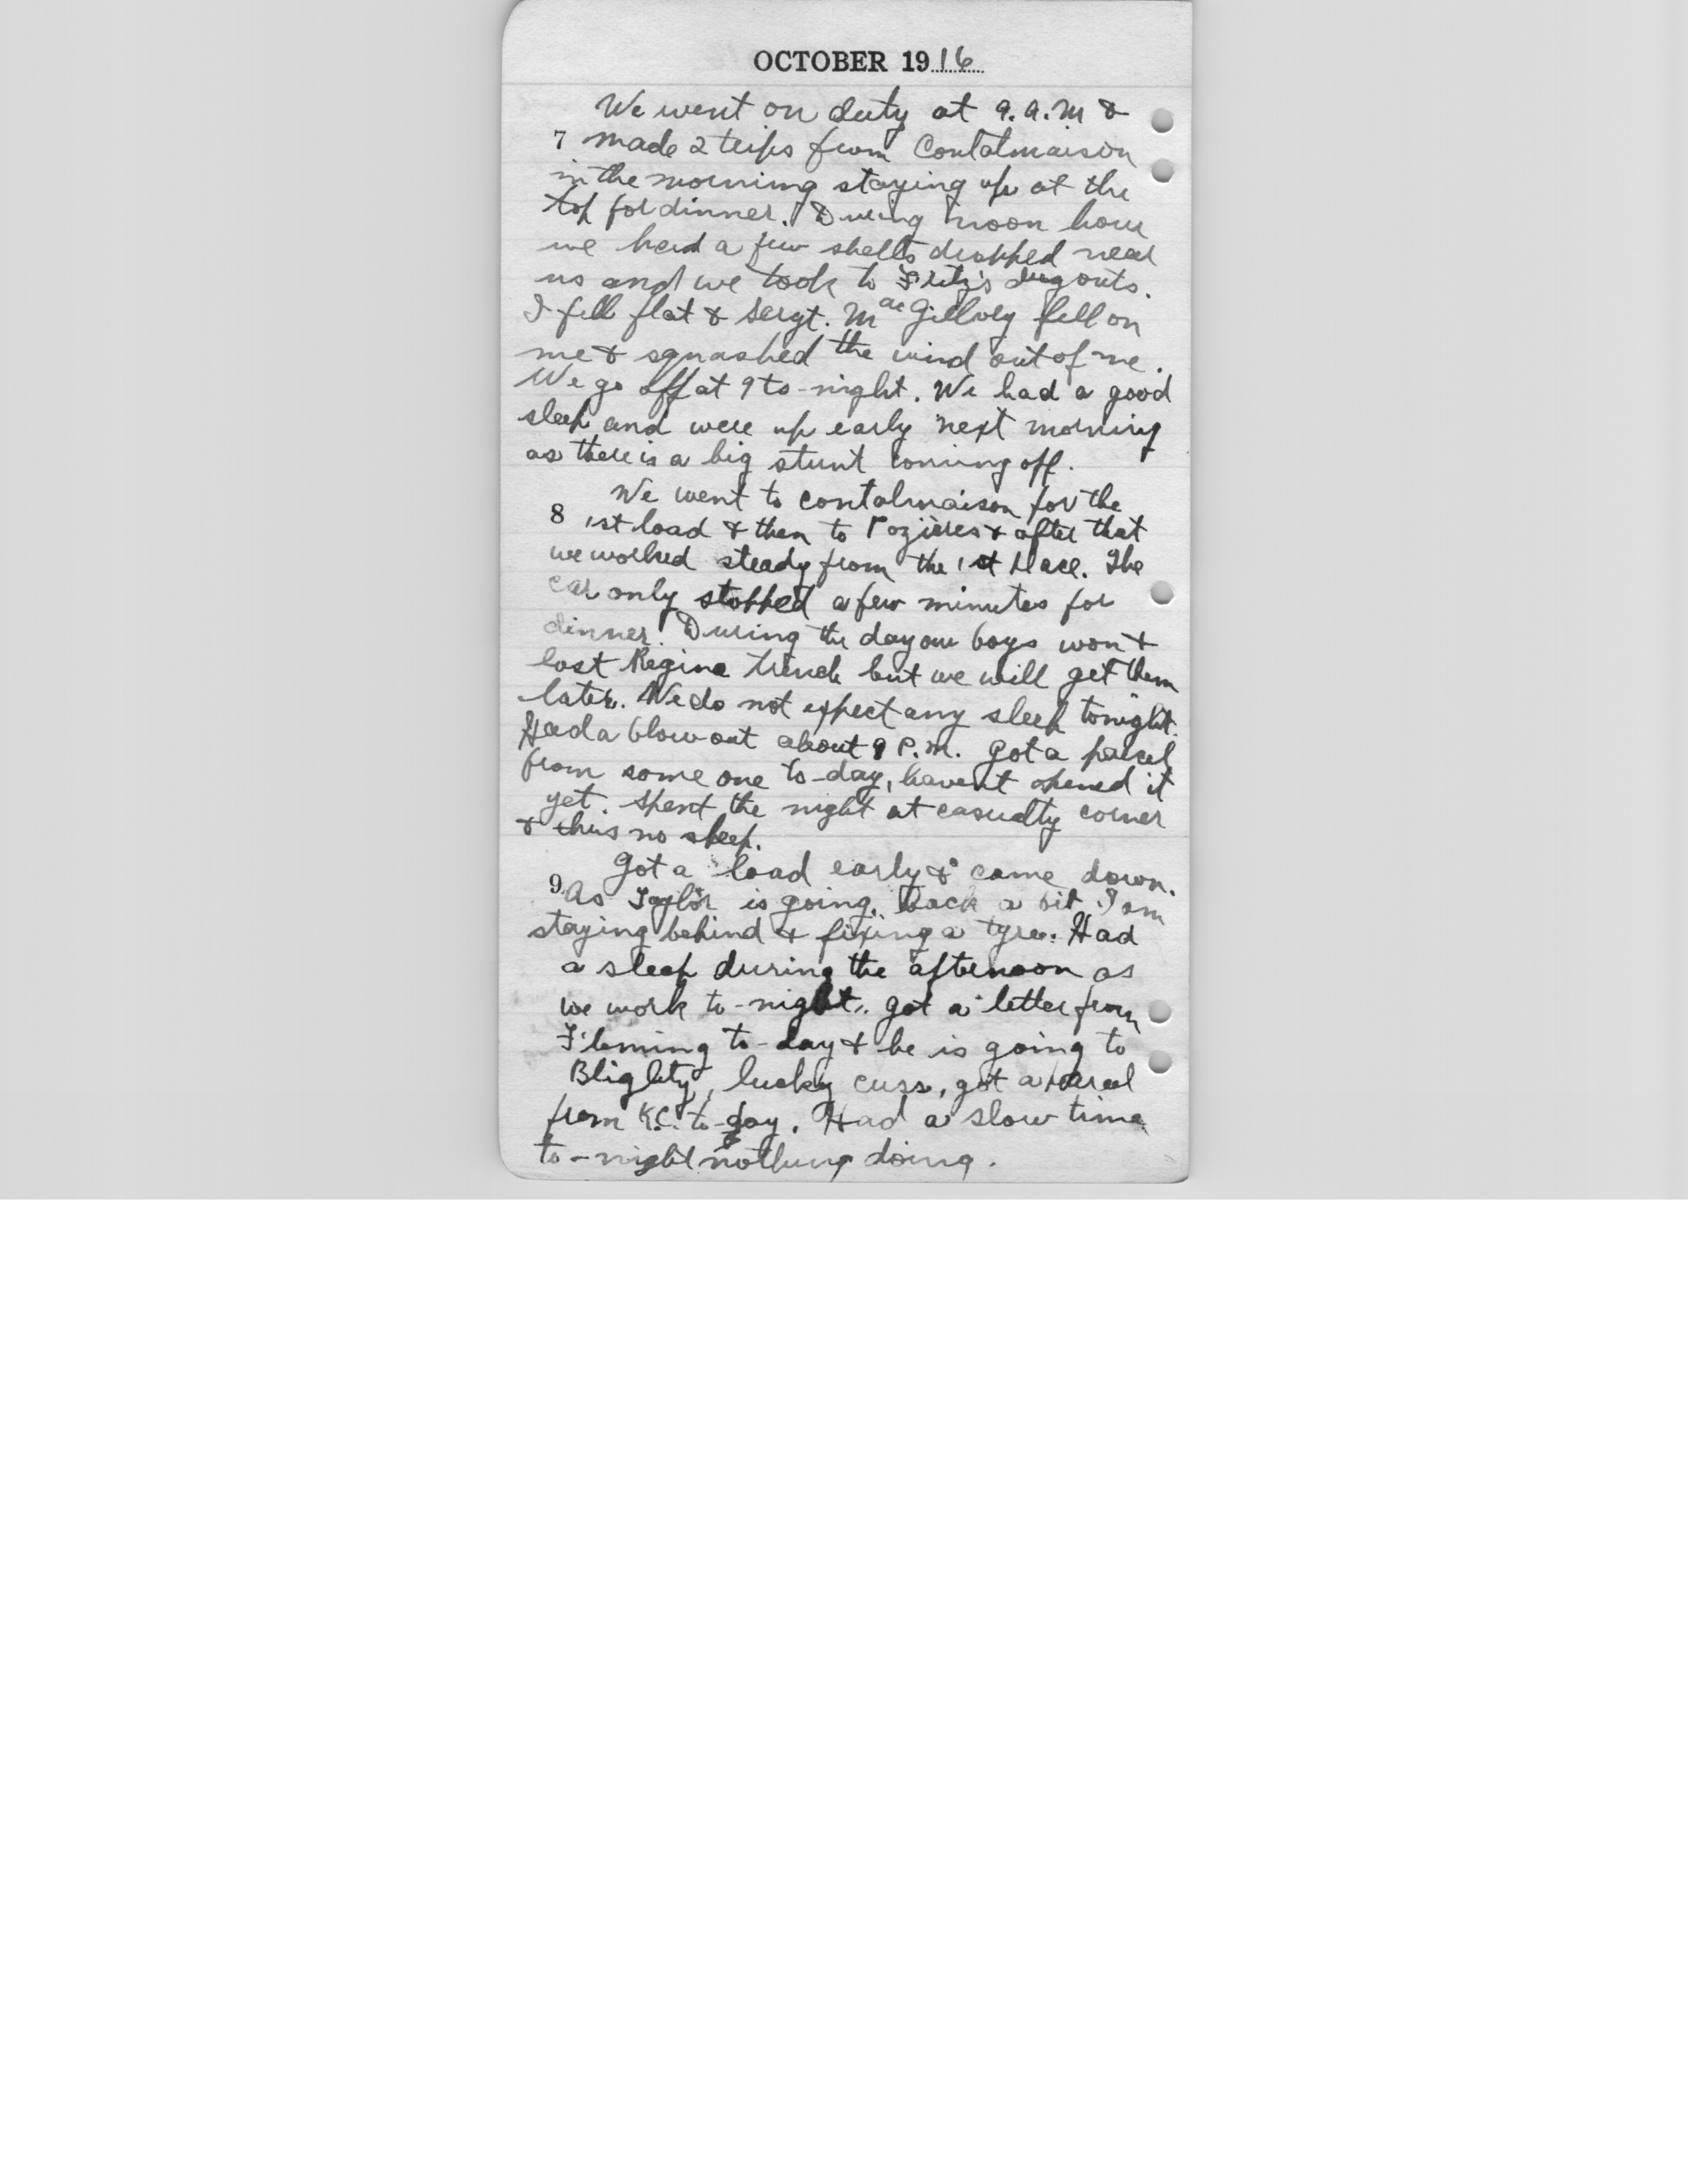 OCTOBER 1916
We went on duty at 9.a.m &
7 made 2 trips from Contalmaison
in the morning staying up at the
top for dinner. During noon hour
we had a few shells dropped near
us and we took to Fritz's dugouts.
I fell flat & Sergt. MacGillvey fell on
me & squashed the wind out of me.
We go off at 9 to-night. We had a good
sleep and were up early next morning
as there is a big stunt coming off.
We went to Contalmaison for the
8 1st load & then to Pozieres & after that
we worked steady from the 1st place. The
car only stopped a few minutes for
dinner. During the day our boys won &
lost Regina trench but we will get them
later. We do not expect any sleep tonight.
Had a blow out about 9 P.M. Got a parcel
from some one to-day, havent opened it
yet. Spent the night at casualty corner
& thus no sleep.
Got a load early & came down.
9 As Taylor is going back a bit I am
staying behind & fixing a tyre. Had
a sleep during the afternoon as
we work to-night. got a letter from
Fleming to-day & he is going to
Blighty, lucky cuss, got a parcel
from K.C. to-day. Had a slow time
to-night nothing doing.